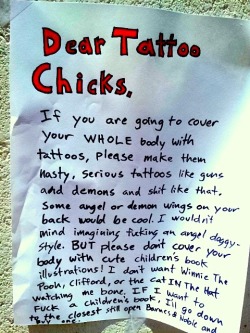 Dear Tattoo
Chicks,
If you are going to cover
your WHOLE body with
tattoos, please make them
nasty, serious tattoos like guns
and demons and shit like that.
Some angel or demon wings on your
back would be cool. I wouldn't
mind imagining fucking an angel doggy-
style. BUT please don't cover your
body with cute children's book
illustrations! I don't want Winnie The
Pooh, Clifford, or the cat IN The Hat
watching me bone. IF I want to
Fuck a children's book, I'll go down
to the closest still open Barnes & Noble and
buy one.